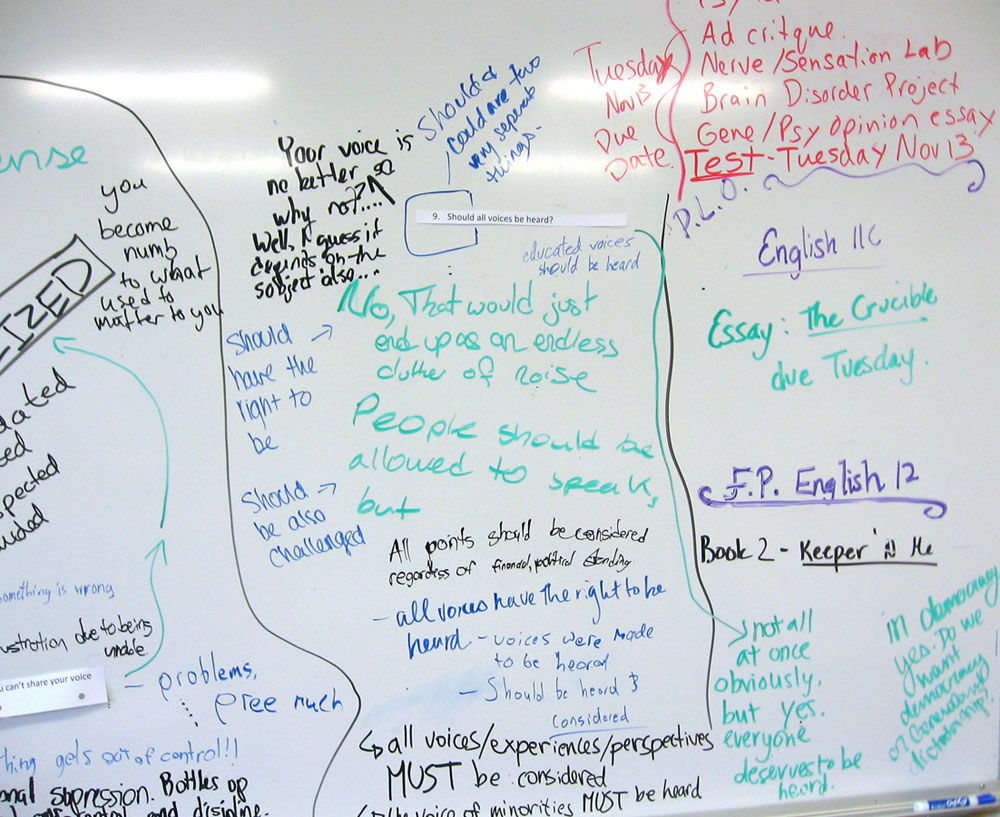 ense
you
become
numb
to what
used to
matter to you
IZED
dated
spected
something is wrong
ustration due to being
unable
u can't share your voice
- problems,
pree much
thing gets out of control!!
onal supression. Bottles up
and disipline.
Your voice is
no better so
why not?....
Well, I guess it
depends on the
subject also....
Should &
could are two
very seperate
things.
9. Should all voices be heard?
educated voices
should be heard
No, That would just
end up as an endless
clutter of noise
should →
have the
right to
be
People should be
allowed to speak,
but
should →
be also
challenged
All points should be considered
regardless of financial, political standing
- all voices have the right to be
heard - voices were made
to be heard
- Should be heard &
considered
↳ all voices/experiences/perspectives
MUST be considered
↳ the voice of minorities MUST be heard
Tuesday
Nov 13
Due
Date.
Ad critque.
Nerve/Sensation Lab
Brain Disorder Project
Gene/Psy Opinion essay
Test - Tuesday Nov 13
P.L.O.
English 11C
Essay: The Crucible
due Tuesday.
F.P. English 12
Book 2 - Keeper 'N Me
not all
at once
obviously.
but yes.
everyone
deserves to be
heard.
in democracy
yes. Do we
want
democracy
or
dictatorship?